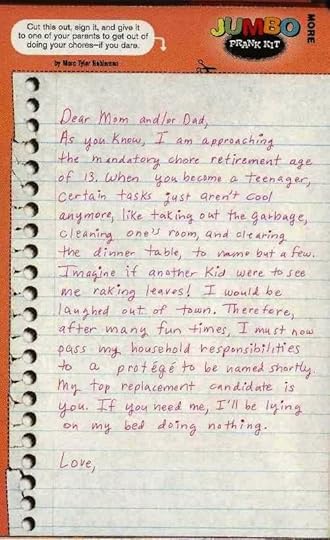 Cut this out, sign it, and give it
to one of your parents to get out of
doing your chores—if you dare.
by Marc Tyler Nobleman
MORE
JUMBO
PRANK KIT
Dear Mom and/or Dad,
As you know, I am approaching
the mandatory chore retirement age
of 13. When you become a teenager,
certain tasks just aren't cool
anymore, like taking out the garbage,
cleaning one's room, and clearing
the dinner table, to name but a few.
Imagine if another kid were to see
me raking leaves! I would be
laughed out of town. Therefore,
after many fun times, I must now
pass my household responsibilities
to a protégé to be named shortly.
My top replacement candidate is
you. If you need me, I'll be lying
on my bed doing nothing.
Love,